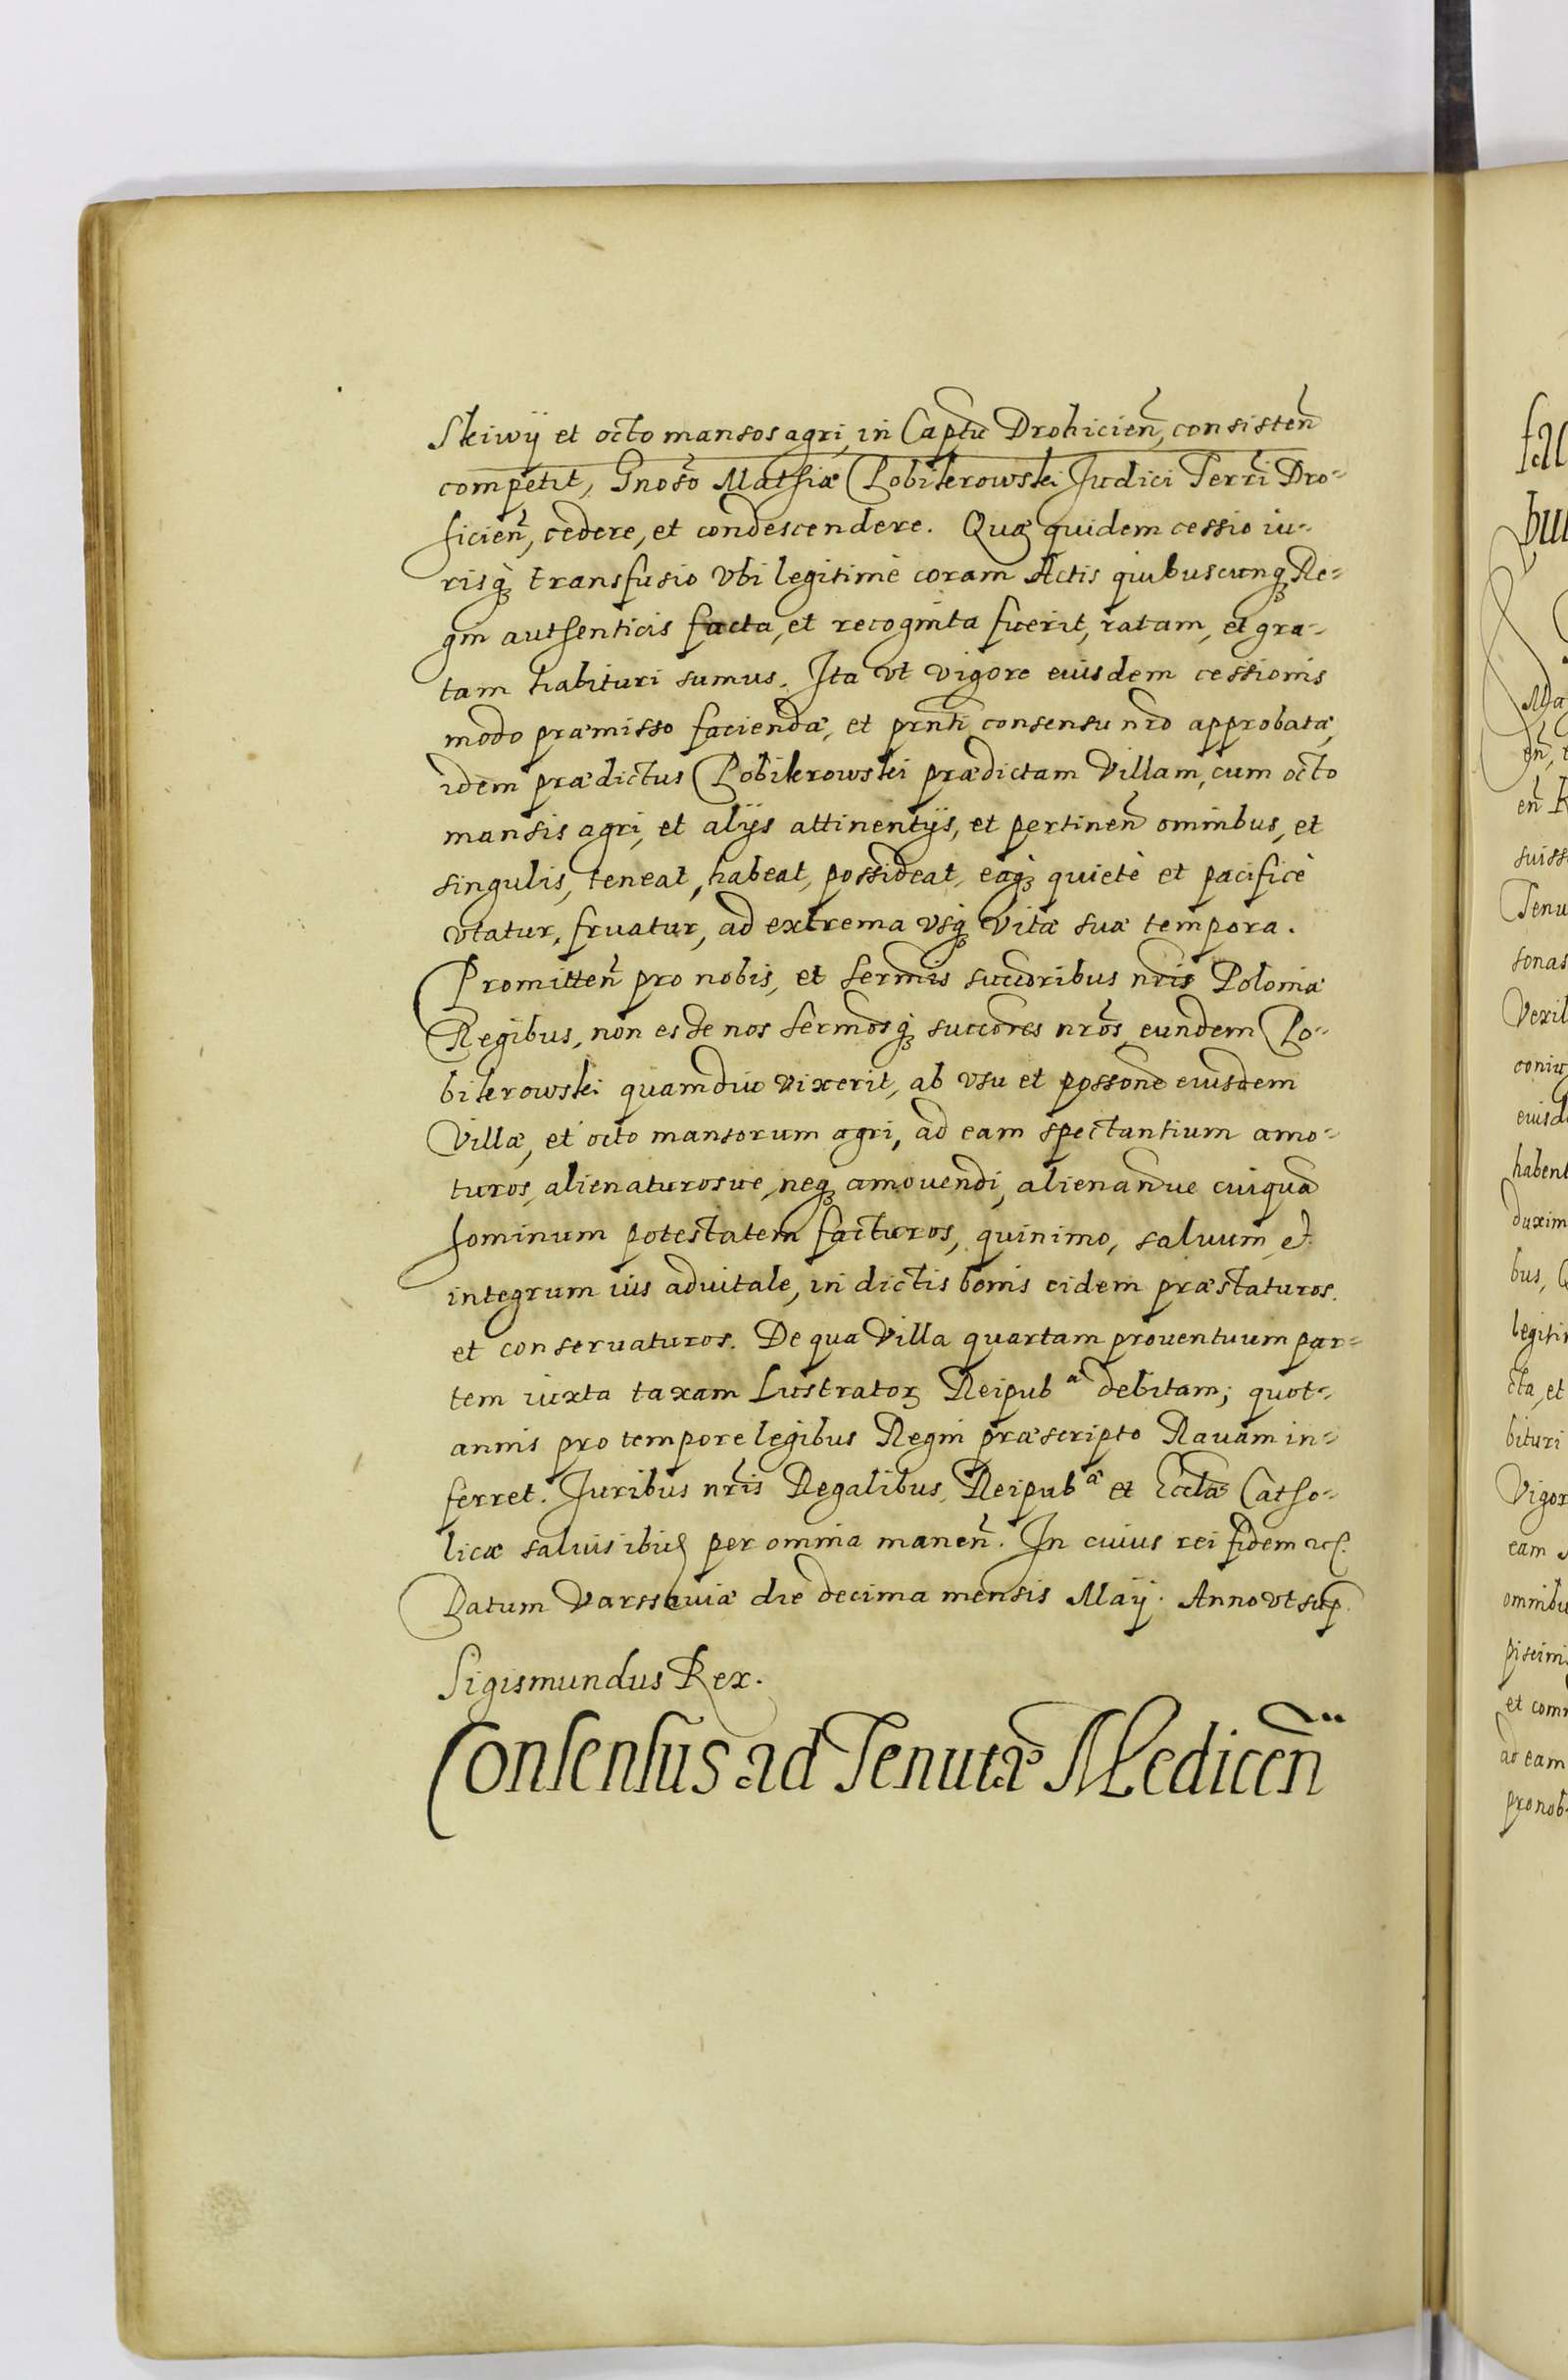 Skiwÿ et octo mansos agri, in Captu Drohicien̄, consisten̄
competit, Gnoso Mathiæ Pobikrowski Judici Terrī Dro-
hicien̄, cedere, et condescendere. Quæ quidem cessio iu-
risq̨ transfusio vbi legitimè coram Actis quibuscunq̨ Re-
gni authenticis facta, et recognita fuerit, ratam, et gra-
tam habituri sumus. Ita vt vigore euisdem cessionis
modo præmisso faciendæ, et prnti consensu nro approbatæ,
idem prædictus Pobikrowski prædictam Villam, cum octo
mansis agri, et alÿs attinentÿs, et pertinen̄ omnibus, et
singulis, teneat, habeat, possideat, eaq̨ quietè et pacificè
vtatur, fruatur, ad extrema vsq̨ vitæ suæ tempora.
Promitten̄ pro nobis, et Sermis succoribus nris Poloniæ
Regibus, non esse nos Sermosq̨ succores nros, eundem Po-
bikrowski quamdiu vixerit, ab vsu et possone euisdem
Villæ, et octo mansorum agri, ad eam spectantium amo-
turos, alienaturosue, neq̨ amouendi, alienandiue cuiquā
hominum potestatem facturos, quinimo, saluum et
integrum ius aduitale, in dictis bonis eidem præstaturos.
et conseruaturos. De qua Villa quartam prouentuum par-
tem iuxta taxam Lustratorꝝ Reipubᵃ debitam; quot-
annis pro tempore legibus Regni præscripto Rauam in-
ferret. Juribus nris Regalibus, Reipubᵃ et Ecclæ Catho-
licæ saluis ibiꝗ per omnia manen̄. In cuius rei fidem etc.
Datum Varssauiæ die decima mensis Maÿ. Anno vt sup.
Sigismundus Rex.
Consensus ad Tenutā Medicen̄